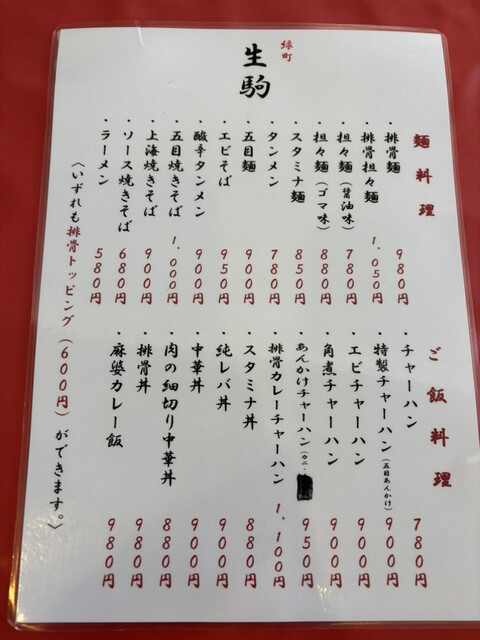 緑町
生駒
麺料理
・排骨麺 980円
・排骨担々麺 1,050円
・担々麺(醤油味) 780円
・担々麺(ゴマ味) 880円
・スタミナ麺 850円
・タンメン 780円
・五目麺 900円
・エビそば 950円
・酸辛タンメン 900円
・五目焼きそば 1,000円
・上海焼きそば 900円
・ソース焼きそば 680円
・ラーメン 580円
〈いずれも排骨トッピング(600円)ができます。〉
ご飯料理
・チャーハン 780円
・特製チャーハン(五目あんかけ) 900円
・エビチャーハン 900円
・角煮チャーハン 900円
・あんかけチャーハン(カニ・ 950円
・排骨カレーチャーハン 1,100円
・スタミナ丼 880円
・純レバ丼 900円
・中華丼 900円
・肉の細切り中華丼 880円
・排骨丼 980円
・麻婆カレー飯 980円